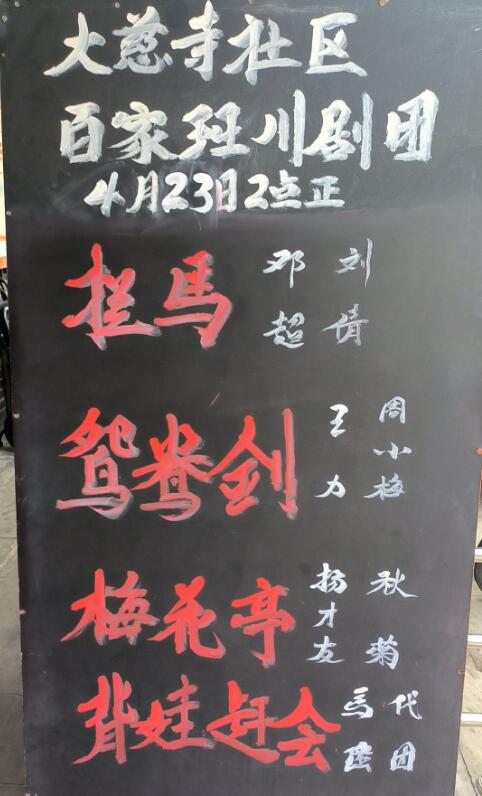 大慈寺社区
百家班川剧团
4月23日2点正
拦馬 邓超 刘倩
鸳鸯剑 王力 周小梅
梅花亭 杨才友 秋菊
背娃赶会 馬陆 代团